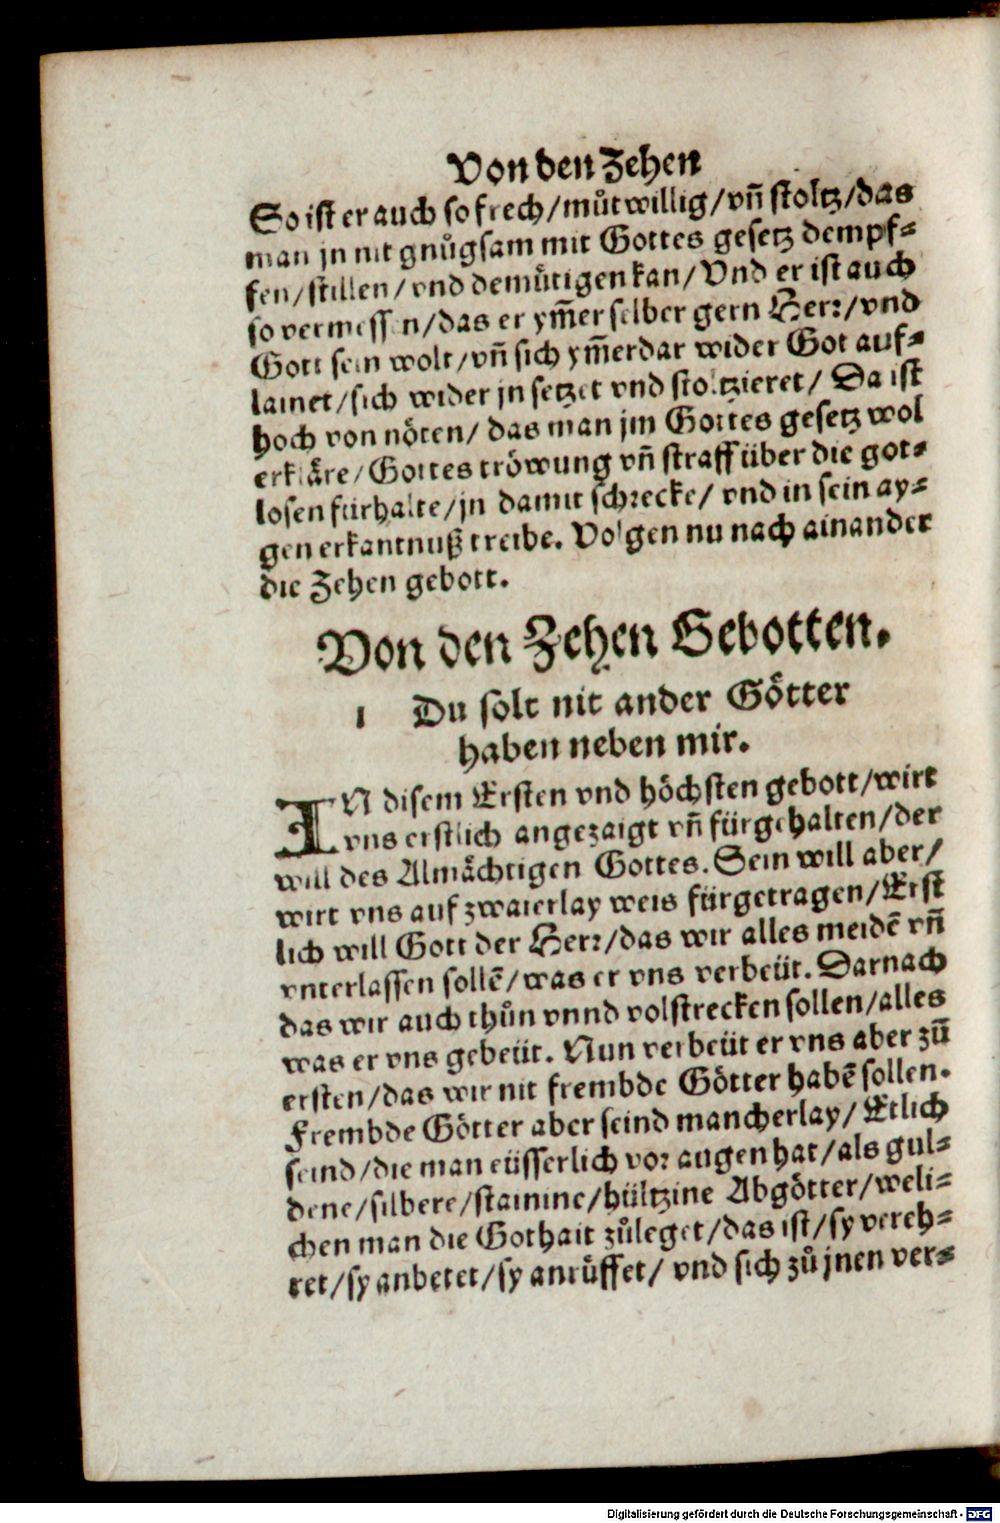 Von den Zehen
So ist er auch so frech/můtwillig/vñ stoltz/das
man jn nit gnůgsam mit Gottes gesetz dempf⸗
fen/stillen/vnd demütigen kan/Vnd er ist auch
so vermessen/das er ym̃er selber gern Herꝛ/vnd
Gott sein wolt/vñ sich ym̃erdar wider Got auf⸗
lainet/sich wider jn setzet vnd stoltzieret/ Da ist
hoch von nöten/ das man jm Gottes gesetz wol
erkläre/Gottes tröwung vñ straff über die got⸗
losen fürhalte/jn damit schꝛecke/ vnd in sein ay⸗
gen erkantnuß treibe. Volgen nu nach ainander
die Zehen gebott.
Von den Zehen Gebotten.
1 Du solt nit ander Götter
haben neben mir.
IN disem Ersten vnd höchsten gebott/wirt
vns erstlich angezaigt vñ fürgehalten/der
will des Almächtigen Gottes. Sein will aber/
wirt vns auf zwaierlay weis fürgetragen/Erst
lich will Gott der Herꝛ/das wir alles meidẽ vñ
vnterlassen sollẽ/was er vns verbeüt. Darnach
das wir auch thůn vnnd volstrecken sollen/alles
was er vns gebeüt. Nun verbeüt er vns aber zũ
ersten/das wir nit frembde Götter habẽ sollen.
Frembde Götter aber seind mancherlay/ Etlich
seind/die man eüsserlich voꝛ augen hat/als gul⸗
dene/silbere/stainine/hültzine Abgötter/weli⸗
chen man die Gothait zůleget/das ist/sy vereh⸗
ret/sy anbetet/sy anrüffet/ vnd sich zů jnen ver⸗
Digitalisierung gefördert durch die Deutsche Forschungsgemeinschaft - DFG